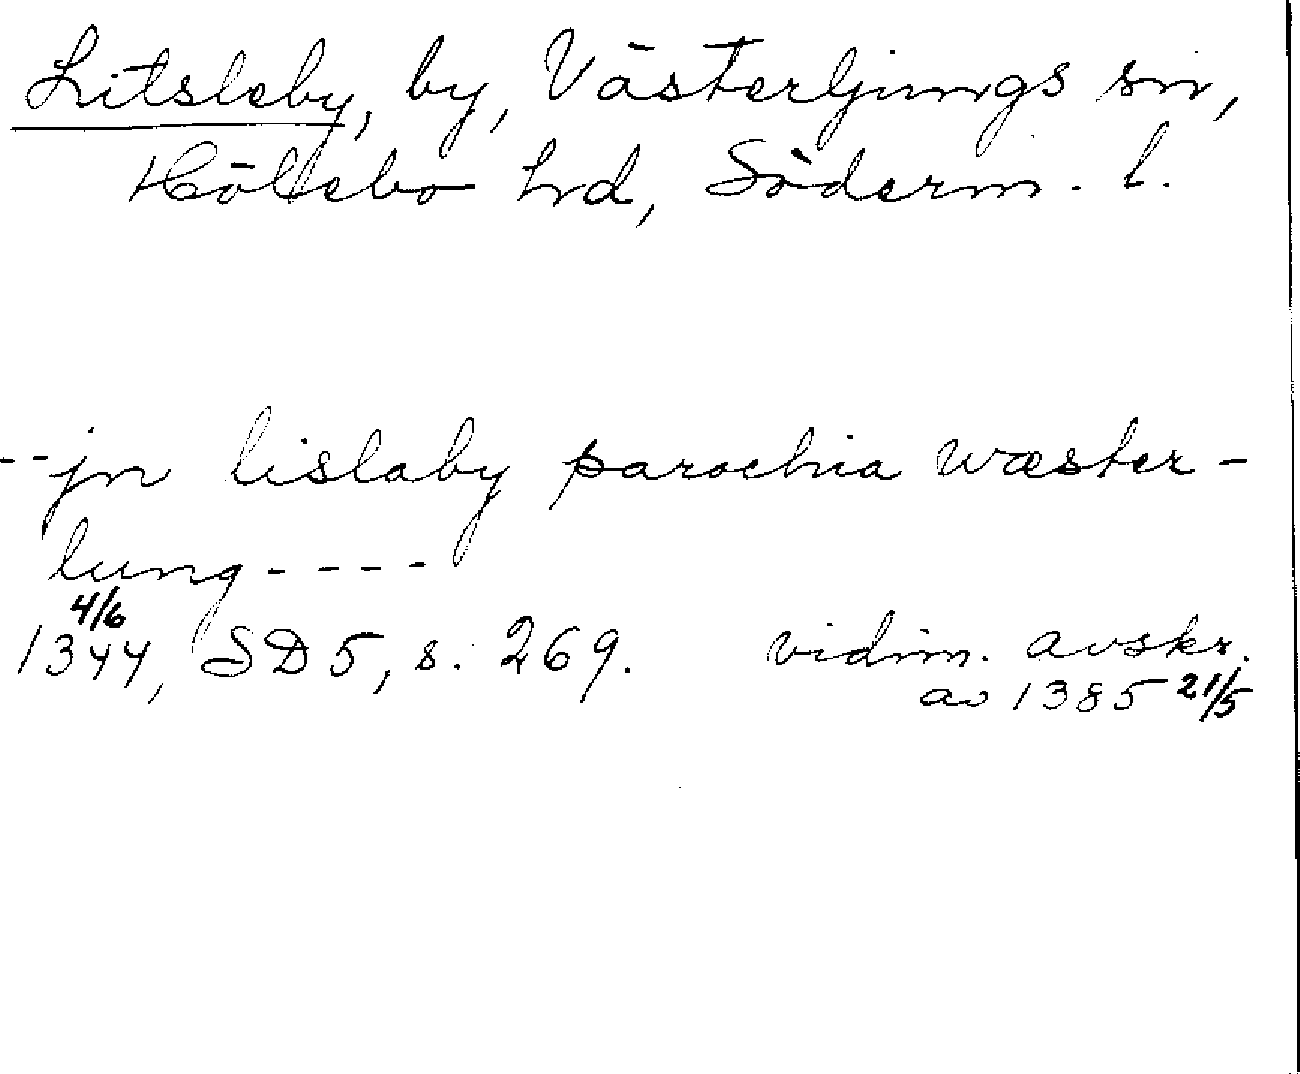 Litsleby, by, Västerljungs sn,
Hölebo hd, Söderm. l.
-- jn lislaby parochia wæster-
lung ----
4/6
1344, SD 5, s. 269. vidim. avskr.
av 1385 21/5